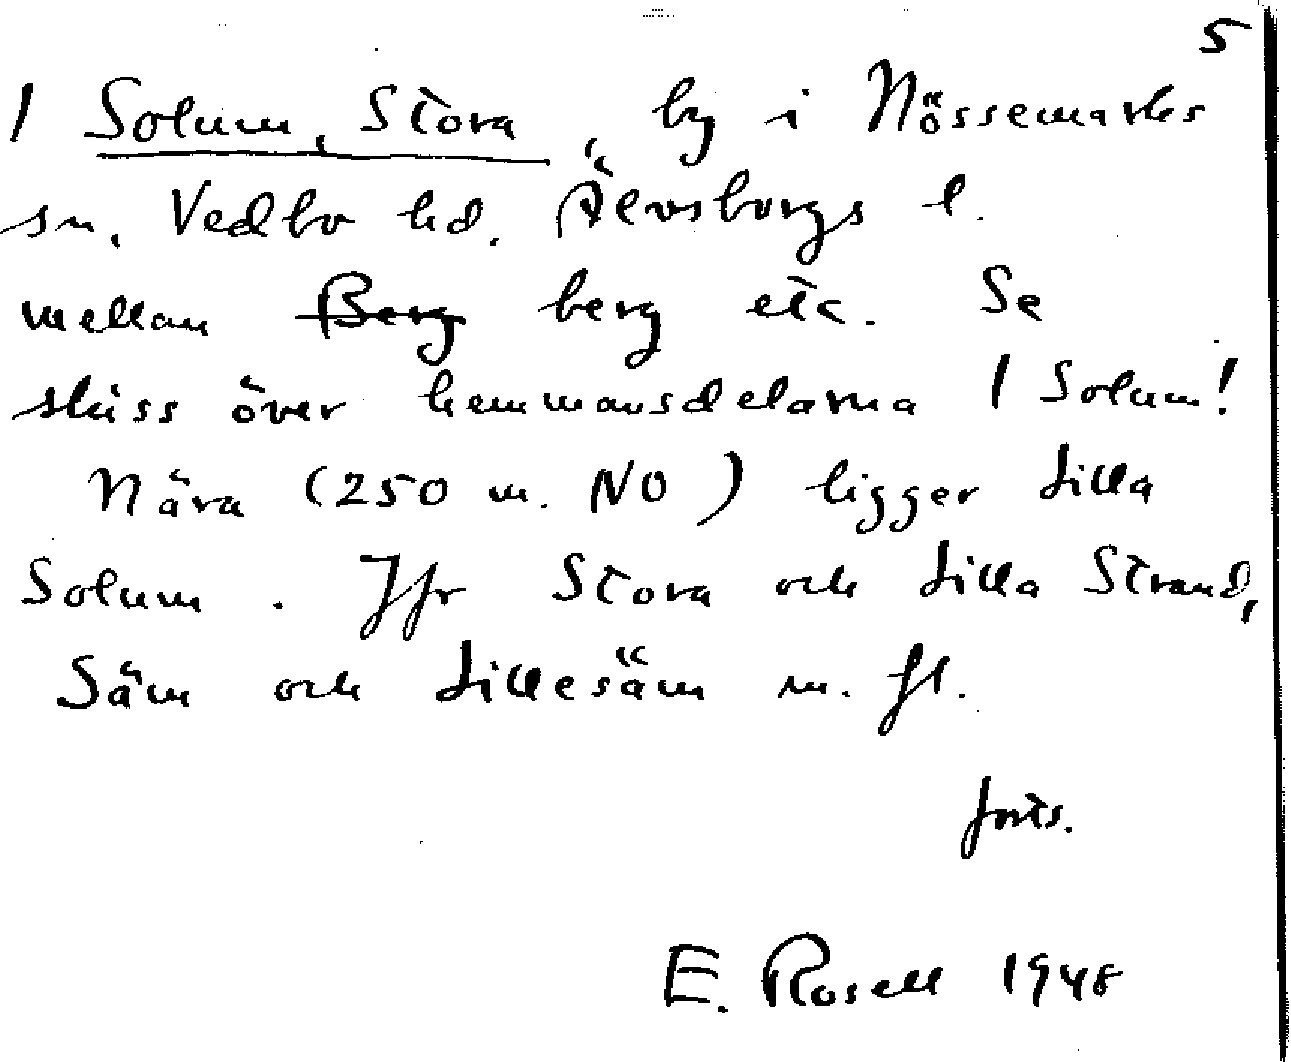 5
1 Solum, Stora, by i Nössemarks
sn, Vedbo hd. Älvsborgs l.
mellan Berg berg etc. Se
skiss över hemmansdelarna 1 Solum!
Nära (250 m. NO) ligger Lilla
Solum. Jfr Stora och Lilla Strand,
Säm och Lillesäm m. fl.
forts.
E. Rosell 1948